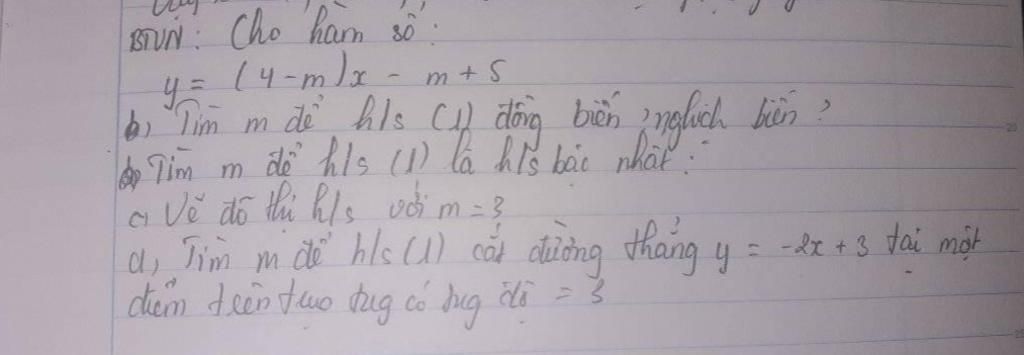 BTVN: Cho hàm số:
y = (4-m)x - m + 5
b, Tìm m để h/s (1) đồng biến, nghịch biến?
Tìm m để h/s (1) là h/s bậc nhất:
c, Vẽ đồ thị h/s với m = 3
d, Tìm m để h/s (1) cắt đường thẳng y = -2x + 3 tại một
điểm trên trục tug có tug độ = 3